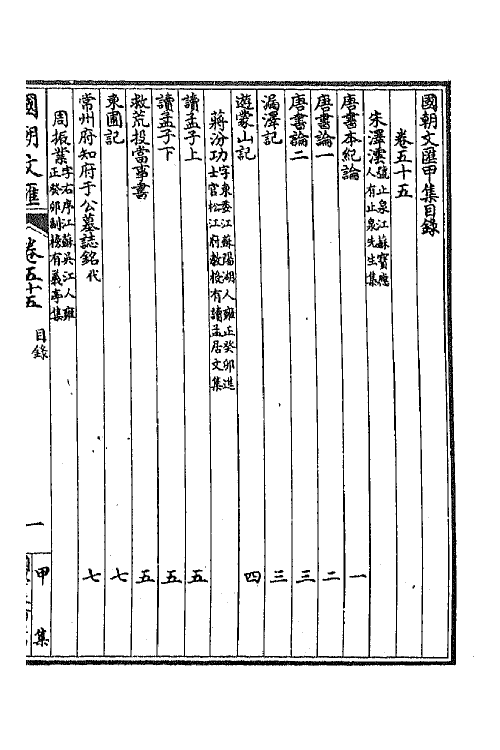 國朝文匯甲集目錄
卷五十五
朱澤澐號止泉江蘇寶應人有止泉先生集
唐書本紀論 一
唐書論一 二
唐書論二 三
漏澤記 三
遊蒙山記 四
蔣汾功字東委江蘇陽湖人雍正癸卯進士官松江府教授有讀孟居文集
讀孟子上 五
讀孟子下 五
救荒投當事書 五
東圃記 七
常州府知府于公墓誌銘代 七
周振業字右序江蘇吳江人雍正癸卯副榜有義亭集
國朝文匯 卷五十五 目錄 一 甲集